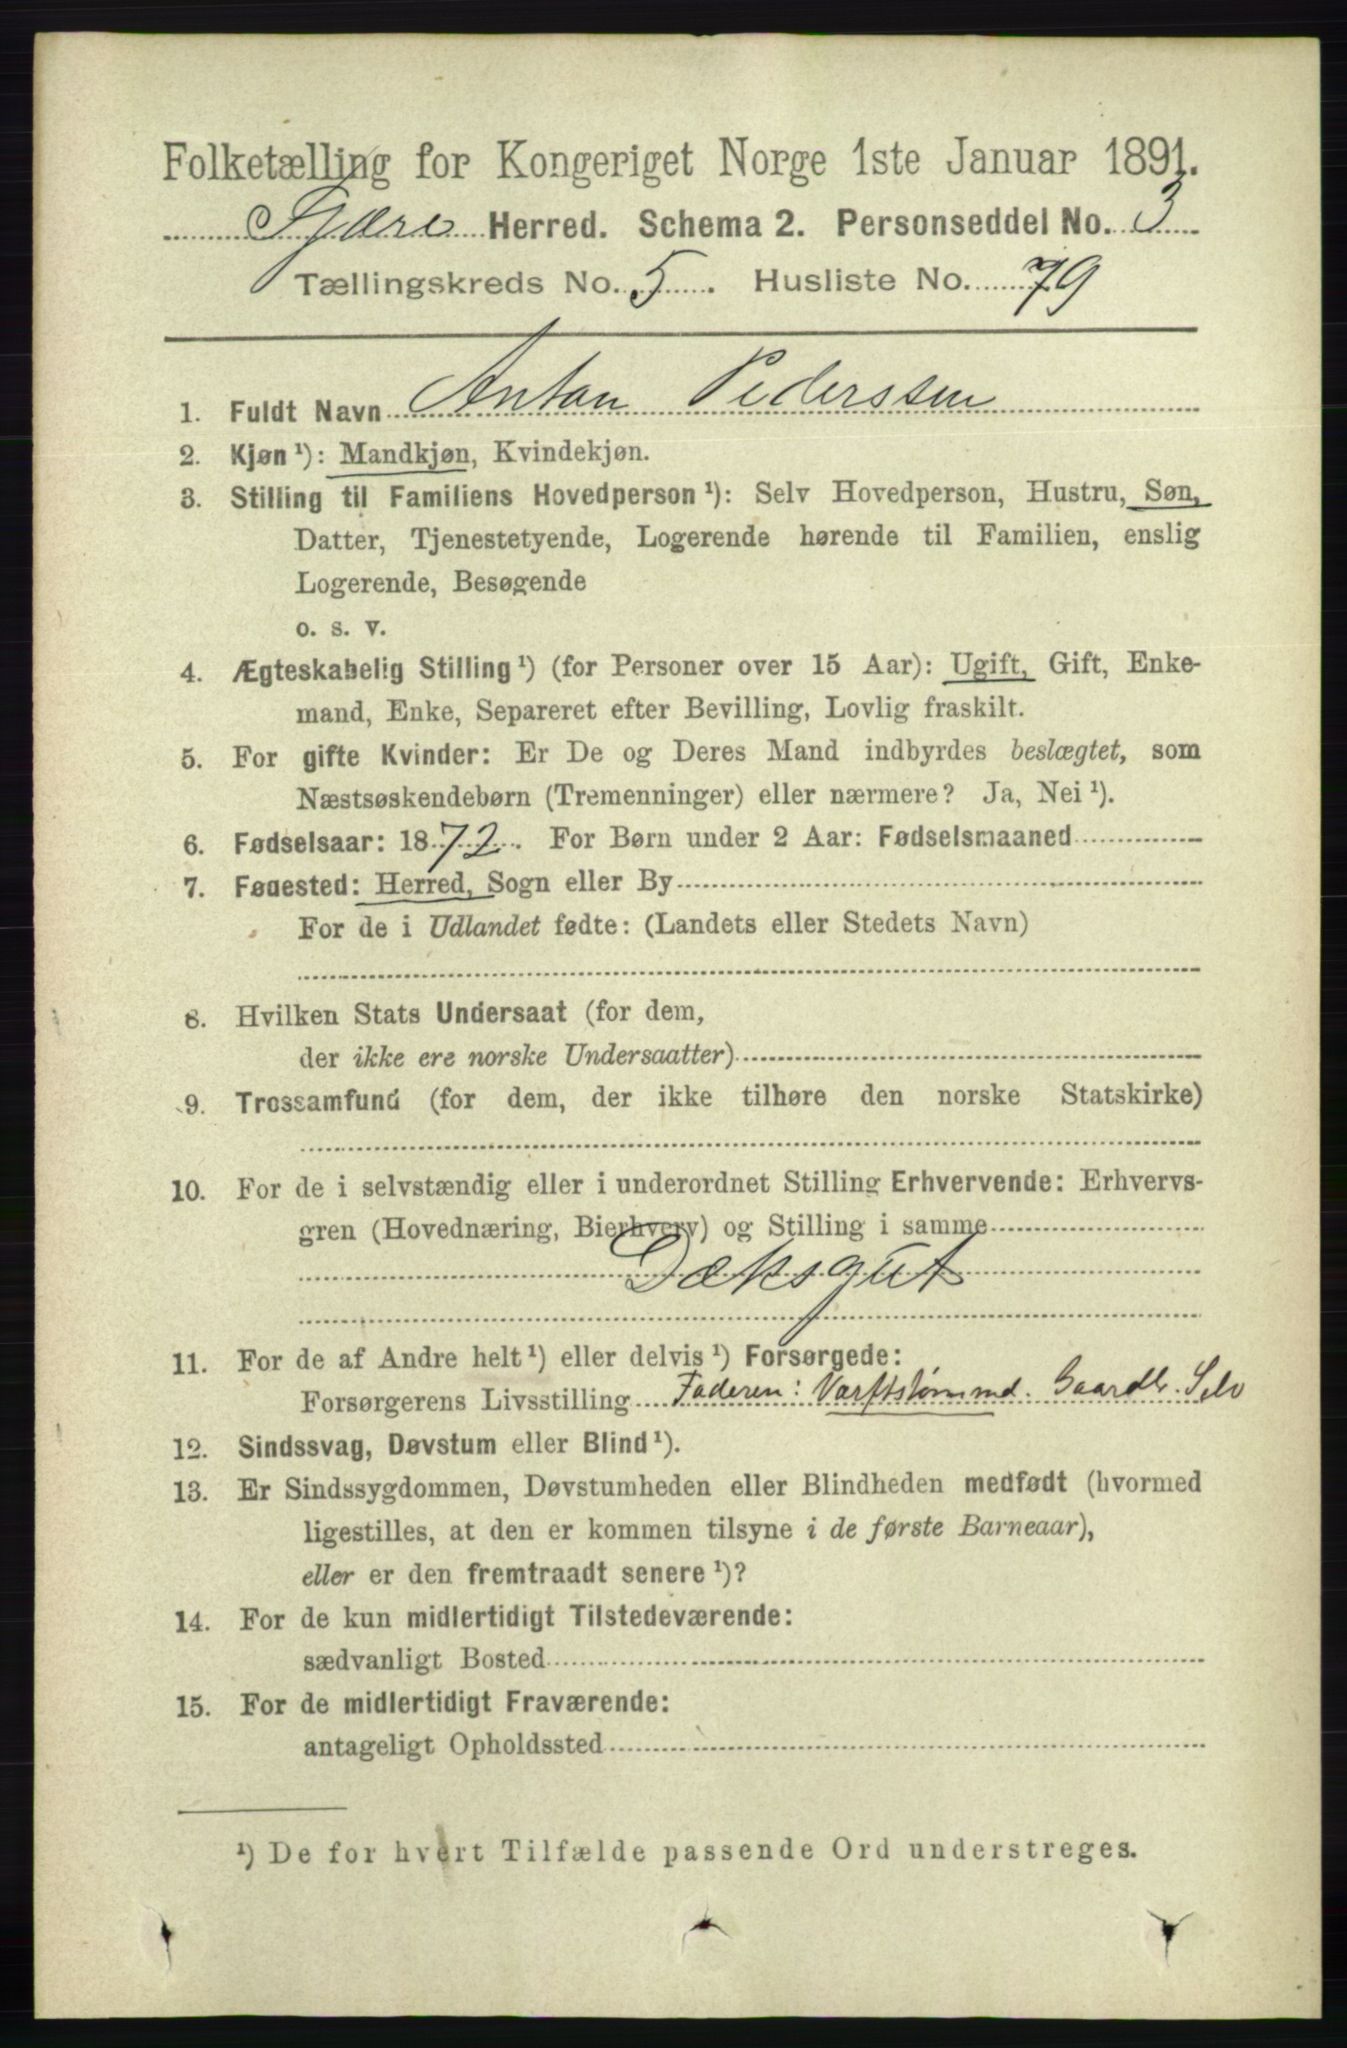 Folketælling for Kongeriget Norge 1ste Januar 1891.
Fjære Herred. Schema 2. Personseddel No. 3
Tællingskreds No. 5. Husliste No. 79
1. Fuldt Navn Anton Pederssen
2. Kjøn ¹): Mandkjøn, Kvindekjøn.
3. Stilling til Familiens Hovedperson ¹): Selv Hovedperson, Hustru, Søn,
Datter, Tjenestetyende, Logerende hørende til Familien, enslig
Logerende, Besøgende
o. s. v.
4. Ægteskabelig Stilling ¹) (for Personer over 15 Aar): Ugift, Gift, Enke-
mand, Enke, Separeret efter Bevilling, Lovlig fraskilt.
5. For gifte Kvinder: Er De og Deres Mand indbyrdes beslægtet, som
Næstsøskendebørn (Tremenninger) eller nærmere? Ja, Nei ¹).
6. Fødselsaar: 1872. For Børn under 2 Aar: Fødselsmaaned
7. Fødested: Herred, Sogn eller By
For de i Udlandet fødte: (Landets eller Stedets Navn)
8. Hvilken Stats Undersaat (for dem,
der ikke ere norske Undersaatter)
9. Trossamfund (for dem, der ikke tilhøre den norske Statskirke)
10. For de i selvstændig eller i underordnet Stilling Erhvervende: Erhvervs-
gren (Hovednæring, Bierhverv) og Stilling i samme
Dæksgut
11. For de af Andre helt ¹) eller delvis ¹) Forsørgede:
Forsørgerens Livsstilling Faderen: Værftstømmd. Gaardb. Selv
12. Sindssvag, Døvstum eller Blind ¹).
13. Er Sindssygdommen, Døvstumheden eller Blindheden medfødt (hvormed
ligestilles, at den er kommen tilsyne i de første Barneaar),
eller er den fremtraadt senere ¹)?
14. For de kun midlertidigt Tilstedeværende:
sædvanligt Bosted
15. For de midlertidigt Fraværende:
antageligt Opholdssted
¹) De for hvert Tilfælde passende Ord understreges.